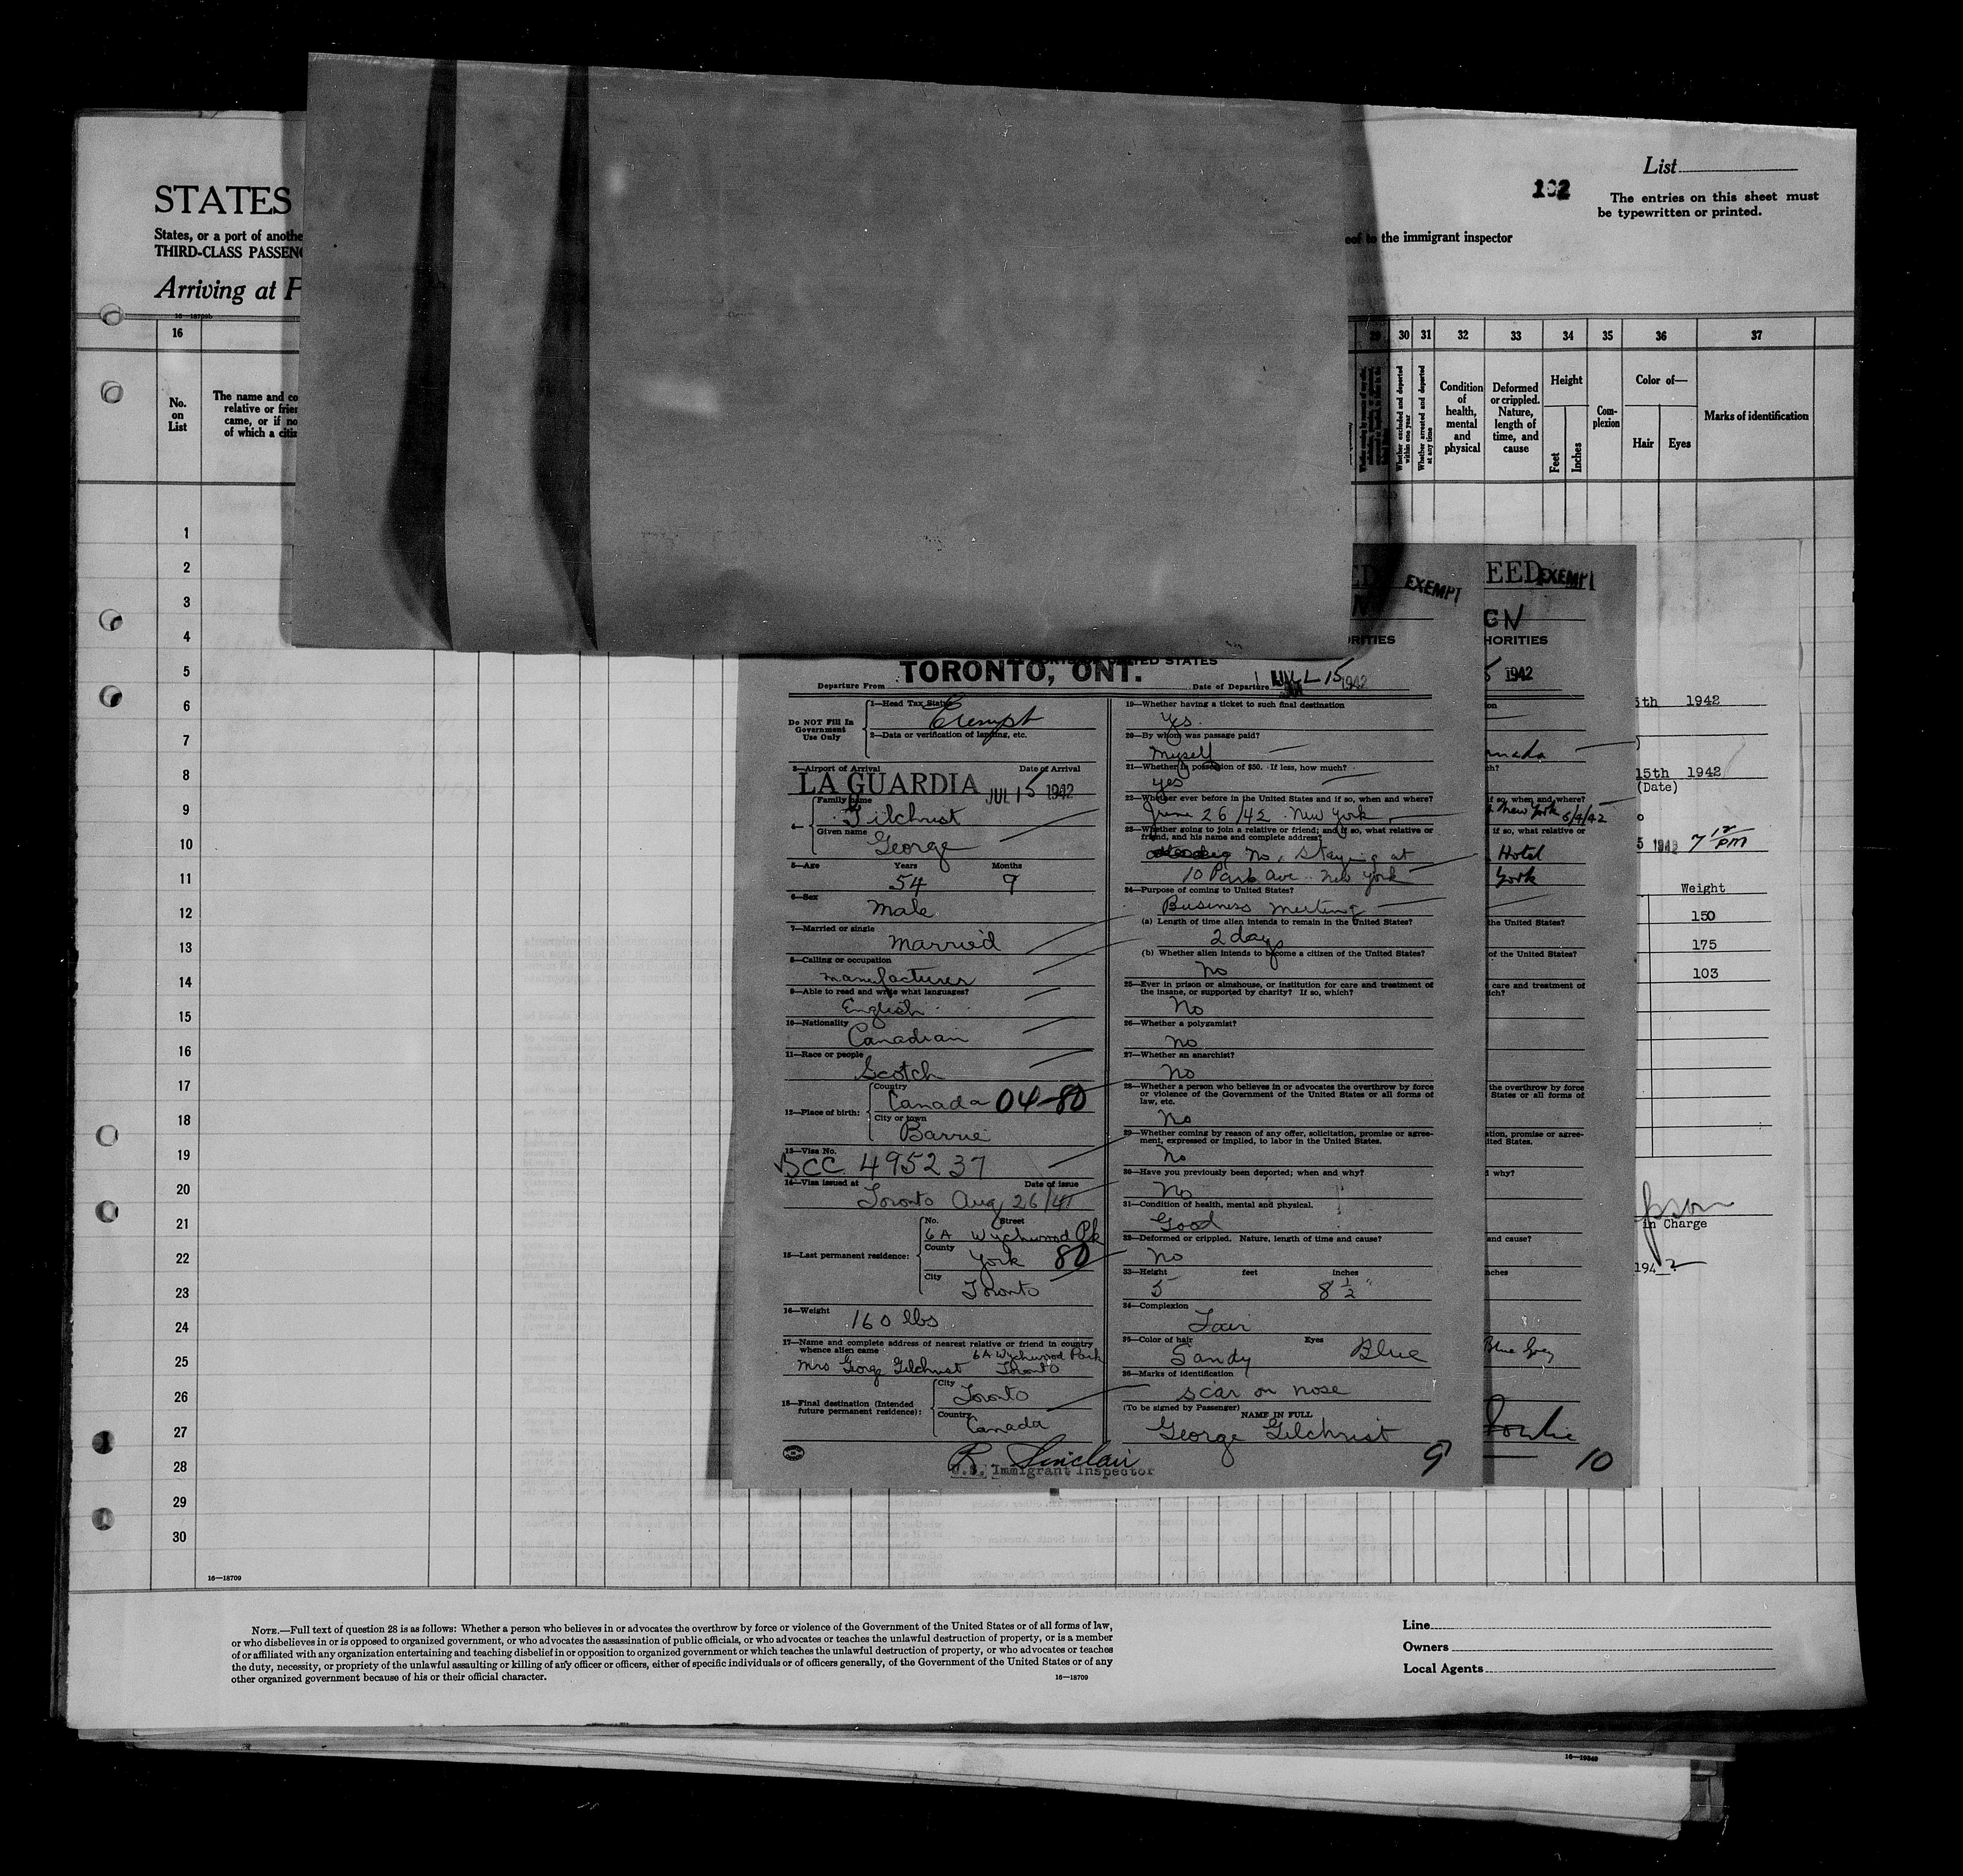 List
102
The entries on this sheet must
be typewritten or printed.
STATES
States, or a port of anothe
THIRD-CLASS PASSEN
to the immigrant inspector
Arriving at
16—18709b
16
29 30 31 32 33 34 35 36 37
No.
on
List
The name and co
relative or frie
came, or if no
of which a citiz
Whether excluded and deported within one year
Whether arrested and deported at any time
Condition
of
health,
mental
and
physical
Deformed
or crippled.
Nature,
length of
time, and
cause
Height
Feet
Inches
Com-
plexion
Color of—
Hair
Eyes
Marks of identification
1
2
3
4
5
6
7
8
9
10
11
12
13
14
15
16
17
18
19
20
21
22
23
24
25
26
27
28
29
30
16—18709
EXEMPT
TORONTO, ONT.
Departure From
Date of Departure JUL 15 1942
Do NOT Fill In
Government
Use Only
1—Head Tax Status
Exempt
2—Data or verification of landing, etc.
3—Airport of Arrival
Date of Arrival
LA GUARDIA JUL 15 1942
Family name
Gilchrist
Given name
George
5—Age Years Months
54 9
6—Sex
male
7—Married or single
married
8—Calling or occupation
manufacturer
9—Able to read and write what languages?
English
10—Nationality
Canadian
11—Race or people
Scotch
12—Place of birth:
Country
Canada 04-80
City or town
Barrie
13—Visa No.
BCC 495237
14—Visa issued at Date of issue
Toronto Aug 26/41
15—Last permanent residence:
No. Street
6A Wychwood Pk
County
York 80
City
Toronto
16—Weight
160 lbs
17—Name and complete address of nearest relative or friend in country
whence alien came
6A Wychwood Park
Mrs George Gilchrist Toronto
18—Final destination (Intended
future permanent residence):
City
Toronto
Country
Canada
R. Sinclair
U.S. Immigrant Inspector
19—Whether having a ticket to such final destination
Yes.
20—By whom was passage paid?
Myself
21—Whether in possession of $50. If less, how much?
yes
22—Whether ever before in the United States and if so, when and where?
June 26/42 . New York
23—Whether going to join a relative or friend; and if so, what relative or
friend, and his name and complete address?
No, staying at
10 Park Ave. New York
24—Purpose of coming to United States?
Business meeting
(a) Length of time alien intends to remain in the United States?
2 days
(b) Whether alien intends to become a citizen of the United States?
No
25—Ever in prison or almshouse, or institution for care and treatment of
the insane, or supported by charity? If so, which?
No
26—Whether a polygamist?
no
27—Whether an anarchist?
no
28—Whether a person who believes in or advocates the overthrow by force
or violence of the Government of the United States or all forms of
law, etc.
No
29—Whether coming by reason of any offer, solicitation, promise or agree-
ment, expressed or implied, to labor in the United States.
No
30—Have you previously been deported; when and why?
No
31—Condition of health, mental and physical.
Good
32—Deformed or crippled. Nature, length of time and cause?
No
33—Height feet inches
5 8 1/2 "
34—Complexion
Fair
35—Color of hair Eyes
Sandy Blue
36—Marks of identification
scar on nose
(To be signed by Passenger)
NAME IN FULL
George Gilchrist
9
EED EXEMPT
HORITIES
1942
if so, when and where?
New York 6/4/42
if so, what relative or
Hotel
York
the United States?
of the United States?
care and treatment of
the overthrow by force
States or all forms of
ation, promise or agree-
ited States.
why?
and cause?
nches
Blue Grey
10
5th 1942
15th 1942
(Date)
7 12 PM
Weight
150
175
103
in Charge
1942
NOTE.—Full text of question 28 is as follows: Whether a person who believes in or advocates the overthrow by force or violence of the Government of the United States or of all forms of law,
or who disbelieves in or is opposed to organized government, or who advocates the assassination of public officials, or who advocates or teaches the unlawful destruction of property, or is a member
of or affiliated with any organization entertaining and teaching disbelief in or opposition to organized government or which teaches the unlawful destruction of property, or who advocates or teaches
the duty, necessity, or propriety of the unlawful assaulting or killing of any officer or officers, either of specific individuals or of officers generally, of the Government of the United States or of any
other organized government because of his or their official character.
16—18709
Line
Owners
Local Agents